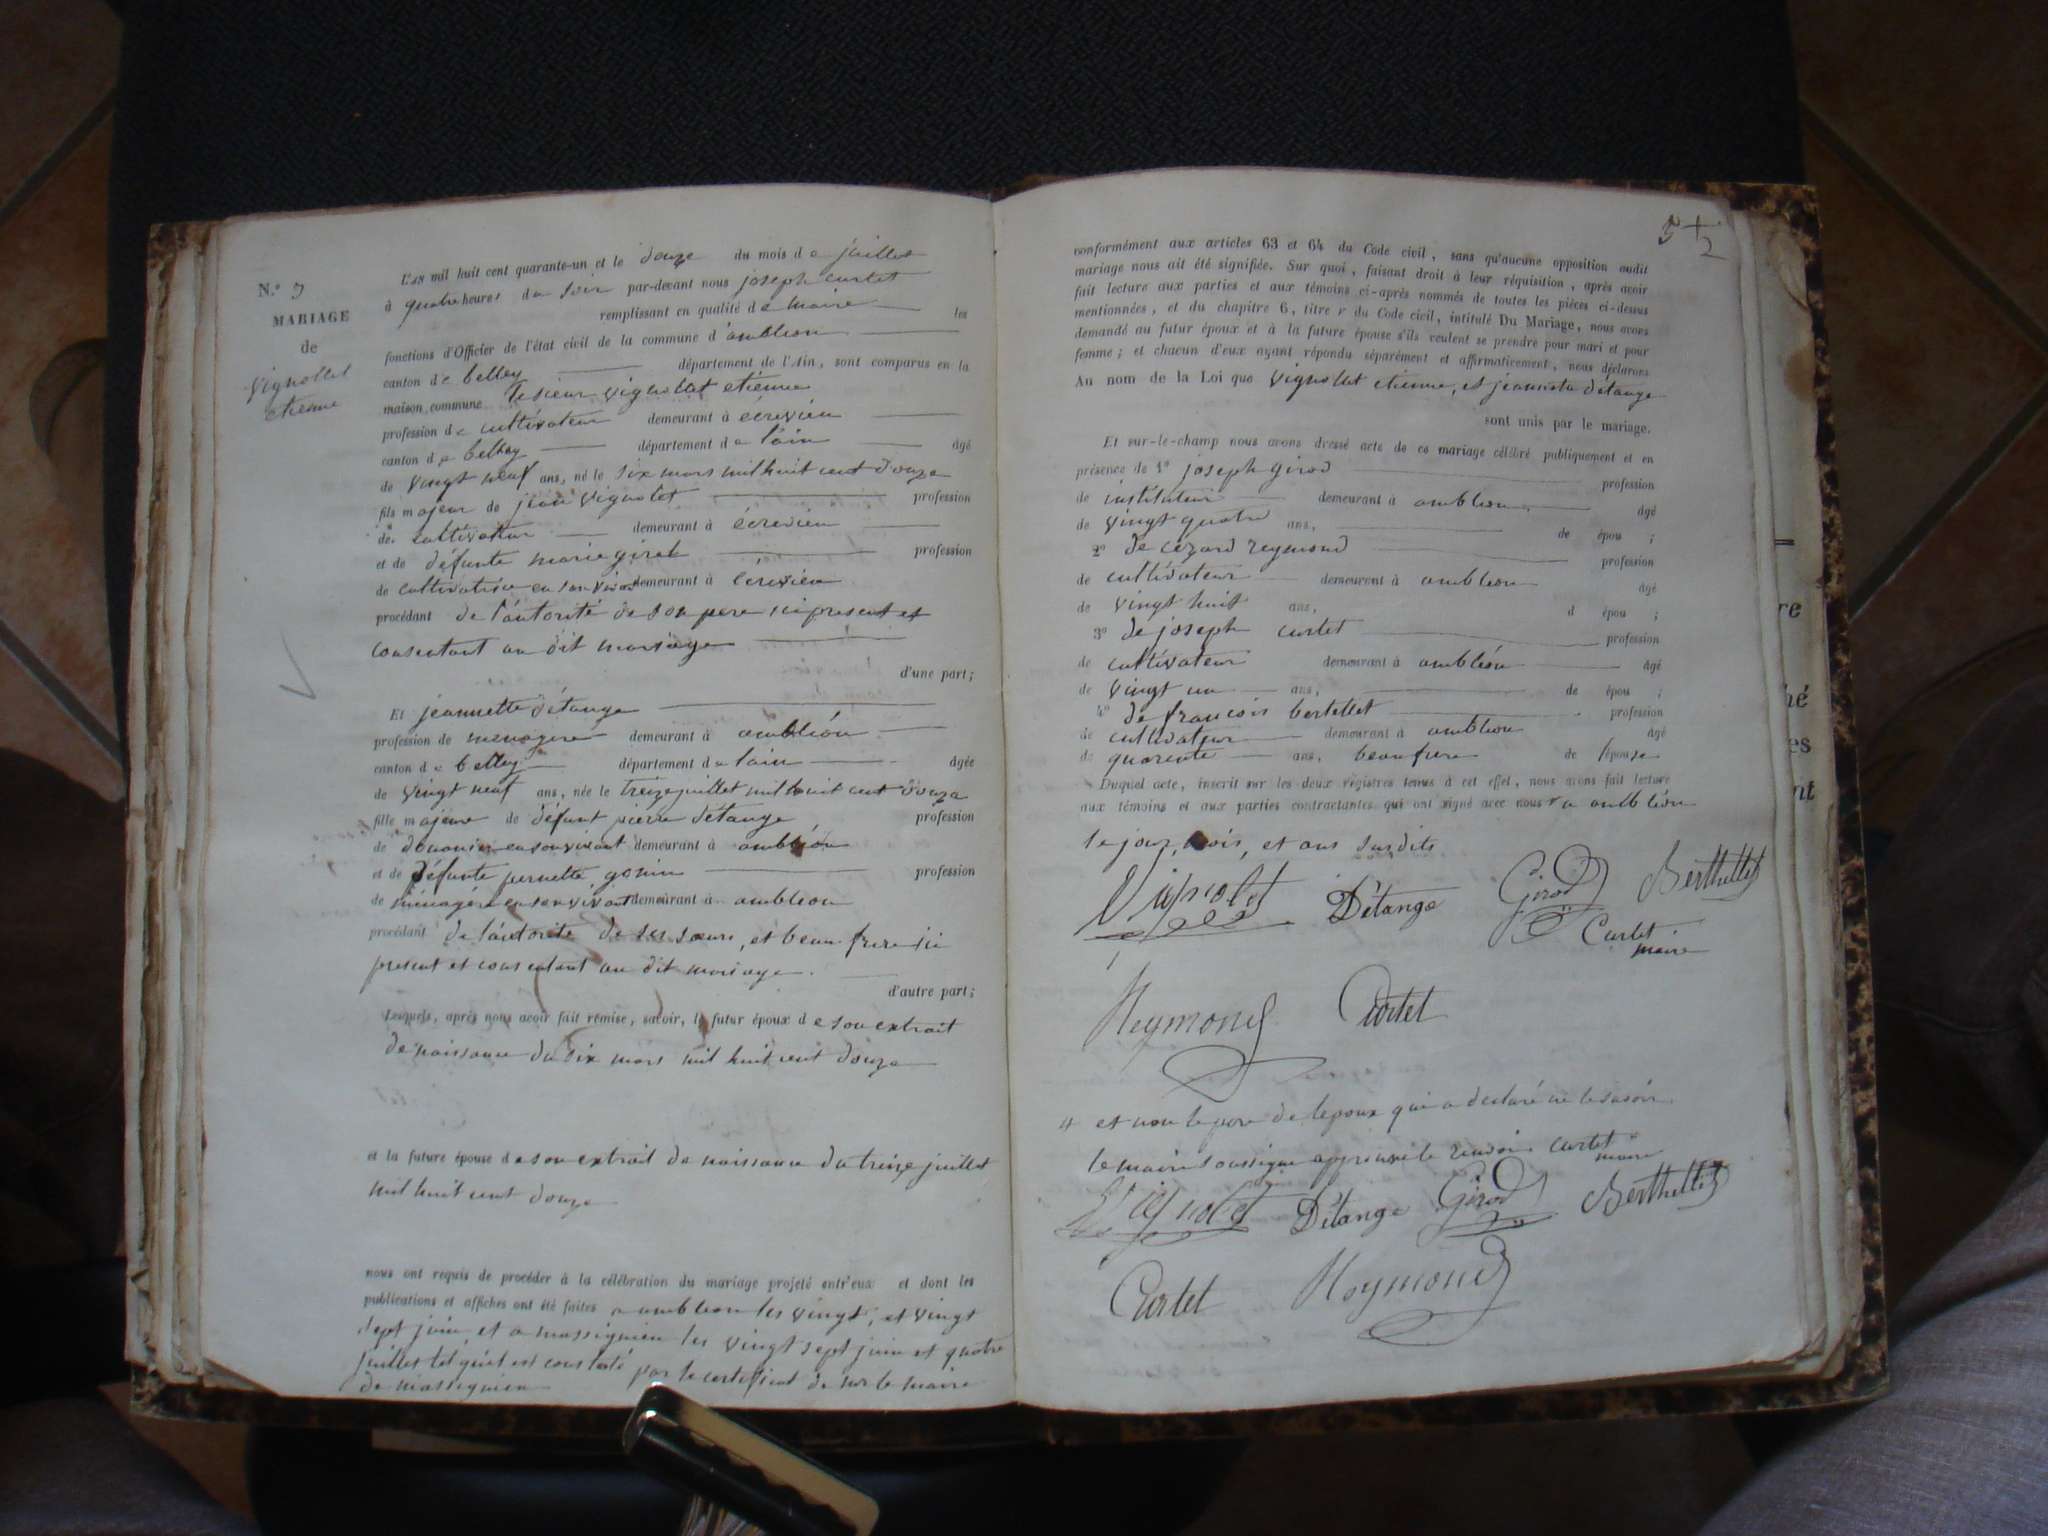 N.º 3
MARIAGE
de
Vignollet
etienne
L'an mil huit cent quarante-un et le douze du mois de juillet
à quatre heures du soir par-devant nous joseph curtet
remplissant en qualité de maire les
fonctions d'Officier de l'état civil de la commune d'ambléon
canton de belley département de l'Ain, sont comparus en la
maison commune le sieur vignollet etienne
profession de cultivateur demeurant à écrivieu
canton de belley département de l'ain âgé
de vingt neuf ans, né le six mars mil huit cent douze
fils majeur de jean vignolet profession
de cultivateur demeurant à écrivieu
et de défunte marie giret profession
de cultivatrice en son vivant demeurant à écrivieu
procédant de l'autorité de son pere ici present et
consentant au dit mariage
d'une part;
Et jeannette d'étange
profession de menagere demeurant à ambléon
canton de belley département de lain âgée
de vingt neuf ans, née le treize juillet mil huit cent douze
fille majeure de défunt pierre d'étange profession
de en son vivant demeurant à ambléon
et de défunte pernette gonin profession
de ménagère en son vivant demeurant à ambléon
procédant de l'autorité de ses sœurs, et beau frere ici
present et consentant au dit mariage.
d'autre part;
Lesquels, après nous avoir fait remise, savoir, le futur époux de son extrait
de naissance du six mars mil huit cent douze
et la future épouse de son extrait de naissance du treize juillet
mil huit cent douze
nous ont requis de procéder à la célébration du mariage projeté entr'eux et dont les
publications et affiches ont été faites a ambleon les vingt, et vingt
sept juin, et a massignieu les vingt sept juin et quatre
juillet tel qu'il est constaté par le certificat de mr le maire
de massignieu
5 +
2
conformément aux articles 63 et 64 du Code civil, sans qu'aucune opposition audit
mariage nous ait été signifiée. Sur quoi, faisant droit à leur réquisition, après avoir
fait lecture aux parties et aux témoins ci-après nommés de toutes les pièces ci-dessus
mentionnées, et du chapitre 6, titre v du Code civil, intitulé Du Mariage, nous avons
demandé au futur époux et à la future épouse s'ils veulent se prendre pour mari et pour
femme; et chacun d'eux ayant répondu séparément et affirmativement, nous déclarons
Au nom de la Loi que vignollet etienne, et jeannette d'étange
sont unis par le mariage.
Et sur-le-champ nous avons dressé acte de ce mariage célébré publiquement et en
présence de 1º joseph girod profession
de instituteur demeurant à ambléon, âgé
de vingt quatre ans, de épou ;
2º de cézard reymond profession
de cultivateur demeurant à ambléon âgé
de vingt huit ans, d épou ;
3º de joseph curtet profession
de cultivateur demeurant à ambléon âgé
de vingt un ans, de épou ;
4º de françois bertellet profession
de cultivateur demeurant à ambléon âgé
de quarente ans, beau frere de lépouse
Duquel acte, inscrit sur les deux registres tenus à cet effet, nous avons fait lecture
aux témoins et aux parties contractantes qui ont signé avec nous a ambléon
le jour, mois, et ans susdits
Vignolet Détange Girod Berthellet
Curtet
maire
Reymond Curtet
et non le pere de lepoux qui a déclaré ne le savoir.
le maire soussigné approuve le renvoi curtet
maire
Vignolet Détange Girod Berthellet
Curtet Reymond
re
hé
es
nt